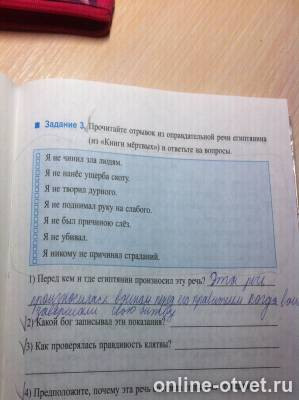 ■ Задание 3. Прочитайте отрывок из оправдательной речи египтянина
(из «Книги мёртвых») и ответьте на вопросы.
Я не чинил зла людям.
Я не нанёс ущерба скоту.
Я не творил дурного.
Я не поднимал руку на слабого.
Я не был причиною слёз.
Я не убивал.
Я никому не причинял страданий.
1) Перед кем и где египтянин произносил эту речь? Эта речь
произносилась
свою битву
2) Какой бог записывал эти показания?
3) Как проверялась правдивость клятвы?
4) Предположите, почему эта речь
online-otvet.ru